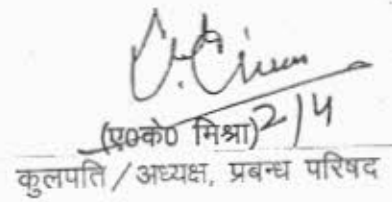 (ए०के० मिश्रा) 2/4
कुलपति / अध्यक्ष, प्रबन्ध परिषद